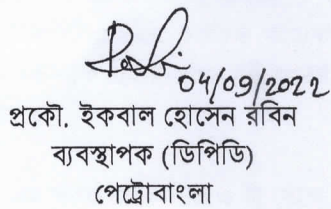 04/09/2022
প্রকৌ. ইকবাল হোসেন রবিন
ব্যবস্থাপক (ডিপিডি)
পেট্রোবাংলা